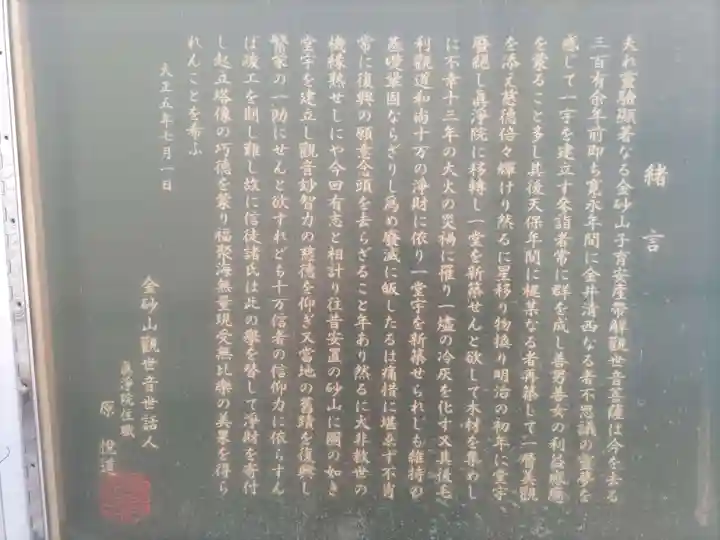 緒言
夫れ霊験顕著なる金砂山子育安産帯解觀世音菩薩は今を去る
三百有余年前即ち寛永年間に今井清西なる者不思議の霊夢を
感じて一宇を建立す参詣者常に群を成し善男善女の利益感應
を蒙ること多し其後天保年間に なる者再築して一層美觀
を添え慈徳倍々輝けり然るに星移り物換り明治の初年に堂宇
廢頽し眞淨院に移轉し一堂を新築せんと欲して木材を集めし
に不幸十三年の大火の災禍に罹り一爐の冷灰を化す又其後
利觀道和尚十万の淨財に依り一堂宇を新築せられしも維持の
基礎鞏固ならざりし為め廢滅に皈したるは痛惜に堪ゑず不肖
常に復興の願意念頭を去らざること年あり然るに大非救世の
機縁熟せしにや今回有志と相計り往昔安置の砂山に圖の如き
堂宇を建立し觀音妙智力の 徳を仰ぎ又當地の舊蹟を復興し
繁榮の一助にせんと欲すれども十方信者の信仰力に依らすん
ば竣工を期し難し故に信徒諸氏は此の擧を賛して淨財を寄付
し起立塔像の巧徳を蒙り福聚海無量現受無比樂の美果を得ら
れんことを希ふ
大正五年七月一日
金砂山觀世音世話人
眞淨院住職
原 道